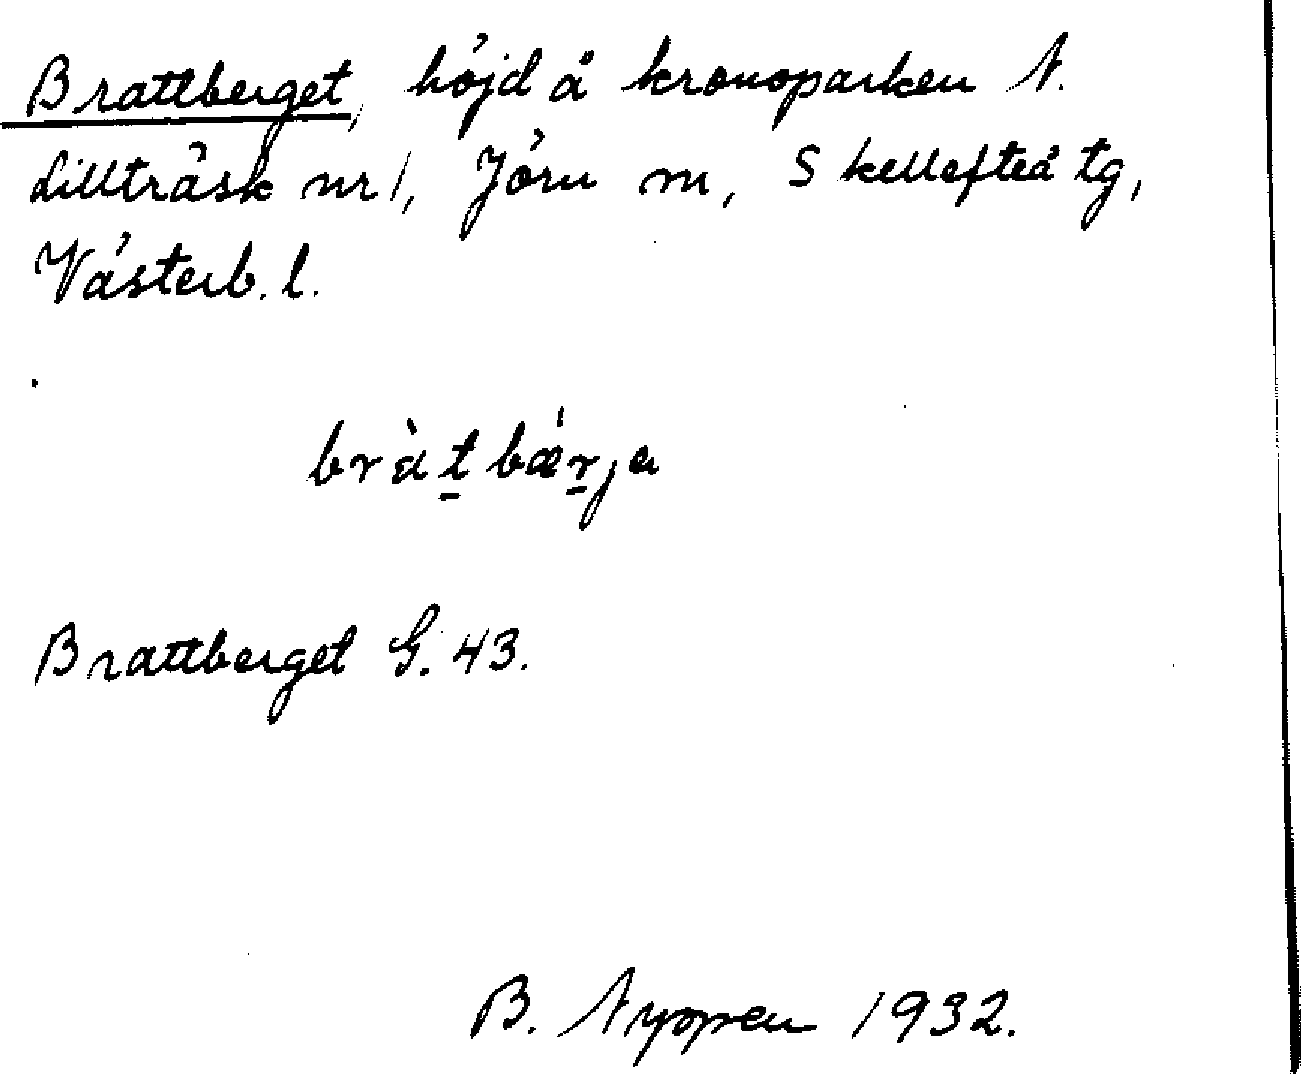 Brattberget, höjd å kronoparken N.
Lillträsk nr 1, Jörn m, Skellefteå tg,
Västerb. l.
bràt̲bǽr̲ja
Brattberget G. 43.
B. Nyppen 1932.